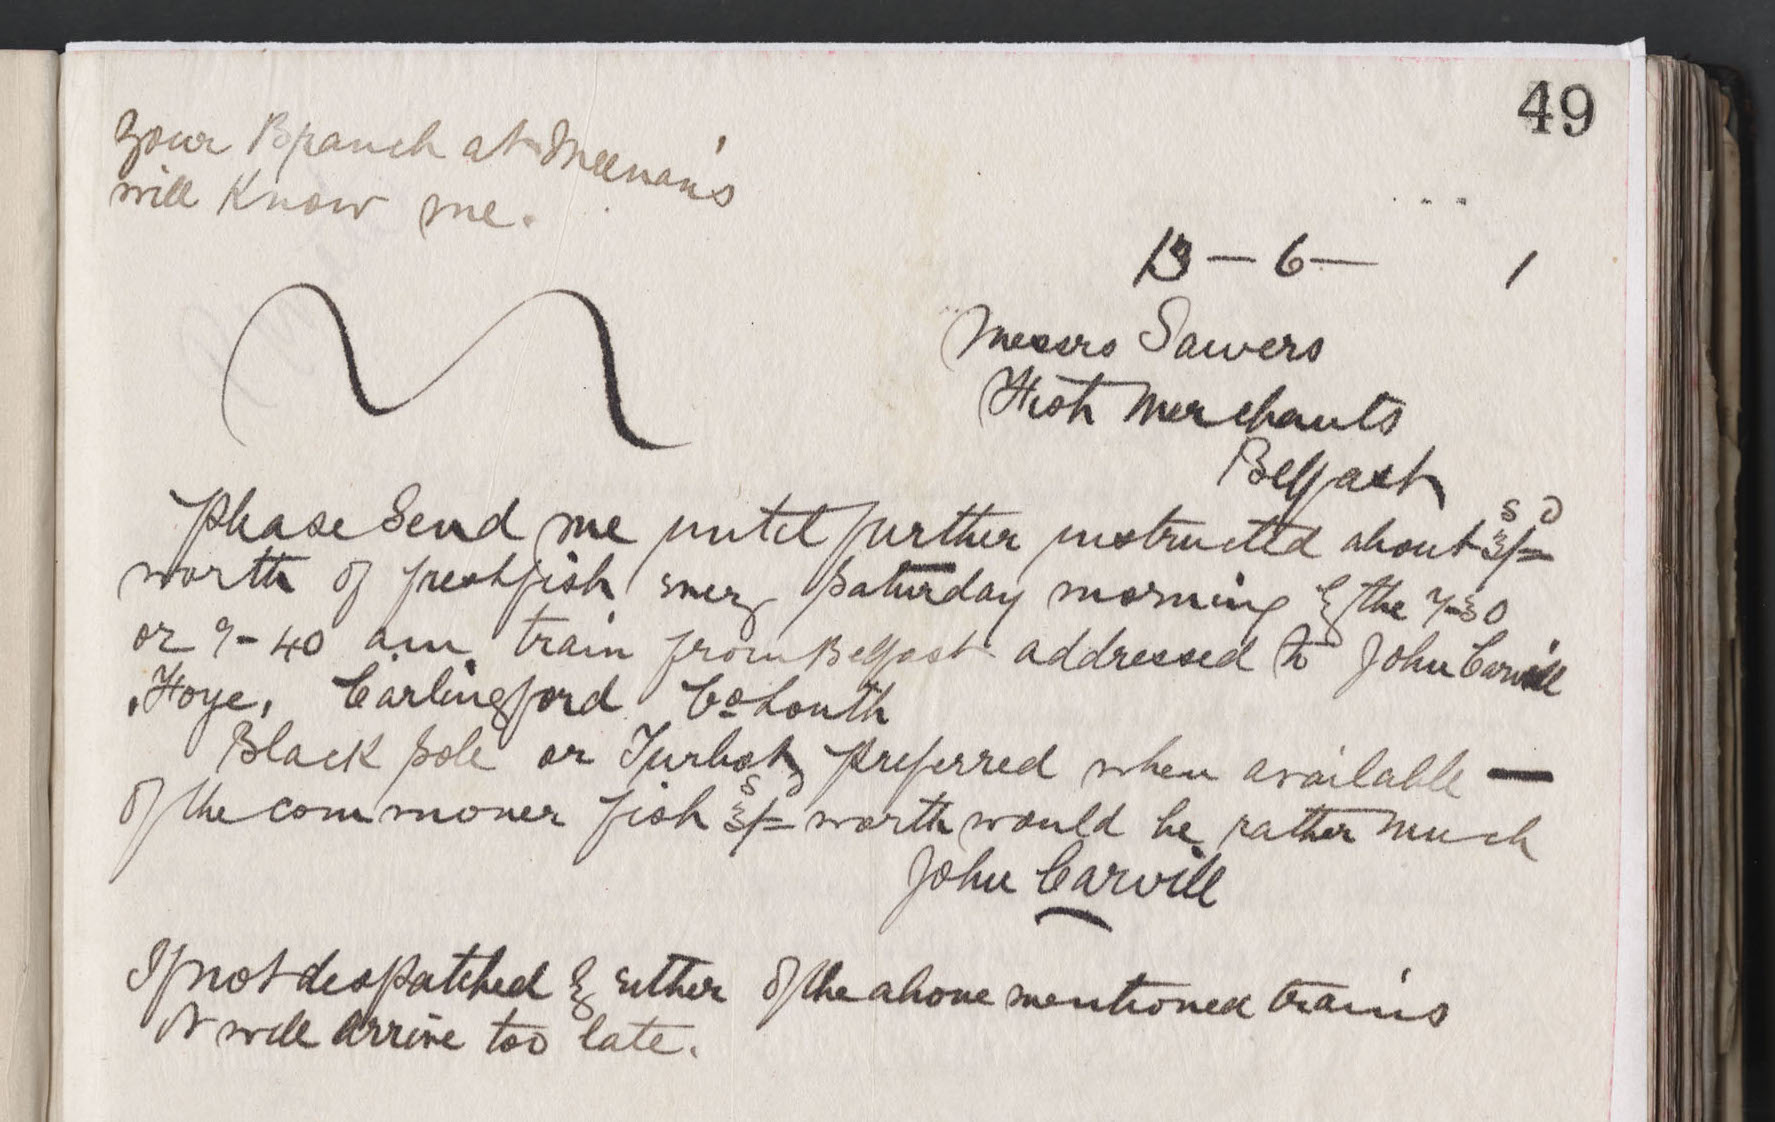 49
Your Branch at Meenan's
will Know me.
13 – 6 – 1
Messrs Sawers
Fish Merchants
Belfast
Please Send me until further instructed about 3/= s d
worth of fresh fish every Saturday morning by the 7-30
or 9-40 am train from Belfast addressed to John Carvill
Co Louth
Carlingford
Black Sole or Turbot preferred when available —
of the commoner fish 3/= s d worth would be rather much
John Carvill
If not despatched by either of the above mentioned trains
it will arrive too late.